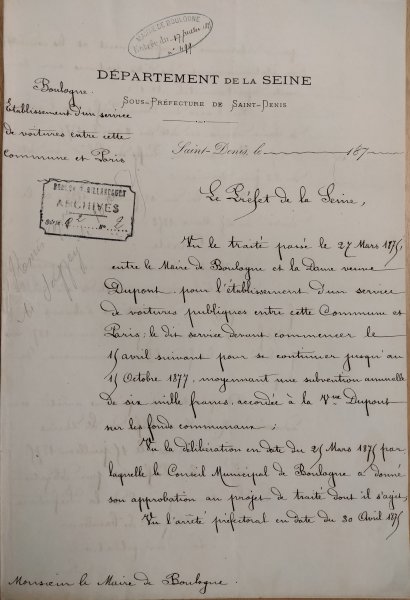 MAIRIE DE BOULOGNE
Entrée du 17 Juillet 187
N° 499
DÉPARTEMENT DE LA SEINE
SOUS-PRÉFECTURE DE SAINT-DENIS
Boulogne.
Établissement d'un service
de voitures entre cette
Commune et Paris
Saint-Denis, le 187
BOULOGNE BILLANCOURT
ARCHIVES
Le Préfet de la Seine,
Vu le traité passé le 27 Mars 1875,
entre le Maire de Boulogne et la Dame veuve
Dupont, pour l'établissement d'un service
de voitures publiques entre cette Commune et
Paris; le dit service devant commencer le
15 avril suivant pour se continuer jusqu'au
15 Octobre 1877, moyennant une subvention annuelle
de six mille francs, accordée à la Vve Dupont
sur les fonds communaux;
Vu la délibération en date du 25 Mars 1875 par
laquelle le Conseil Municipal de Boulogne a donné
son approbation au projet de traité dont il s'agit,
Vu l'arrêté préfectoral en date du 30 Avril 1875
Monsieur le Maire de Boulogne.